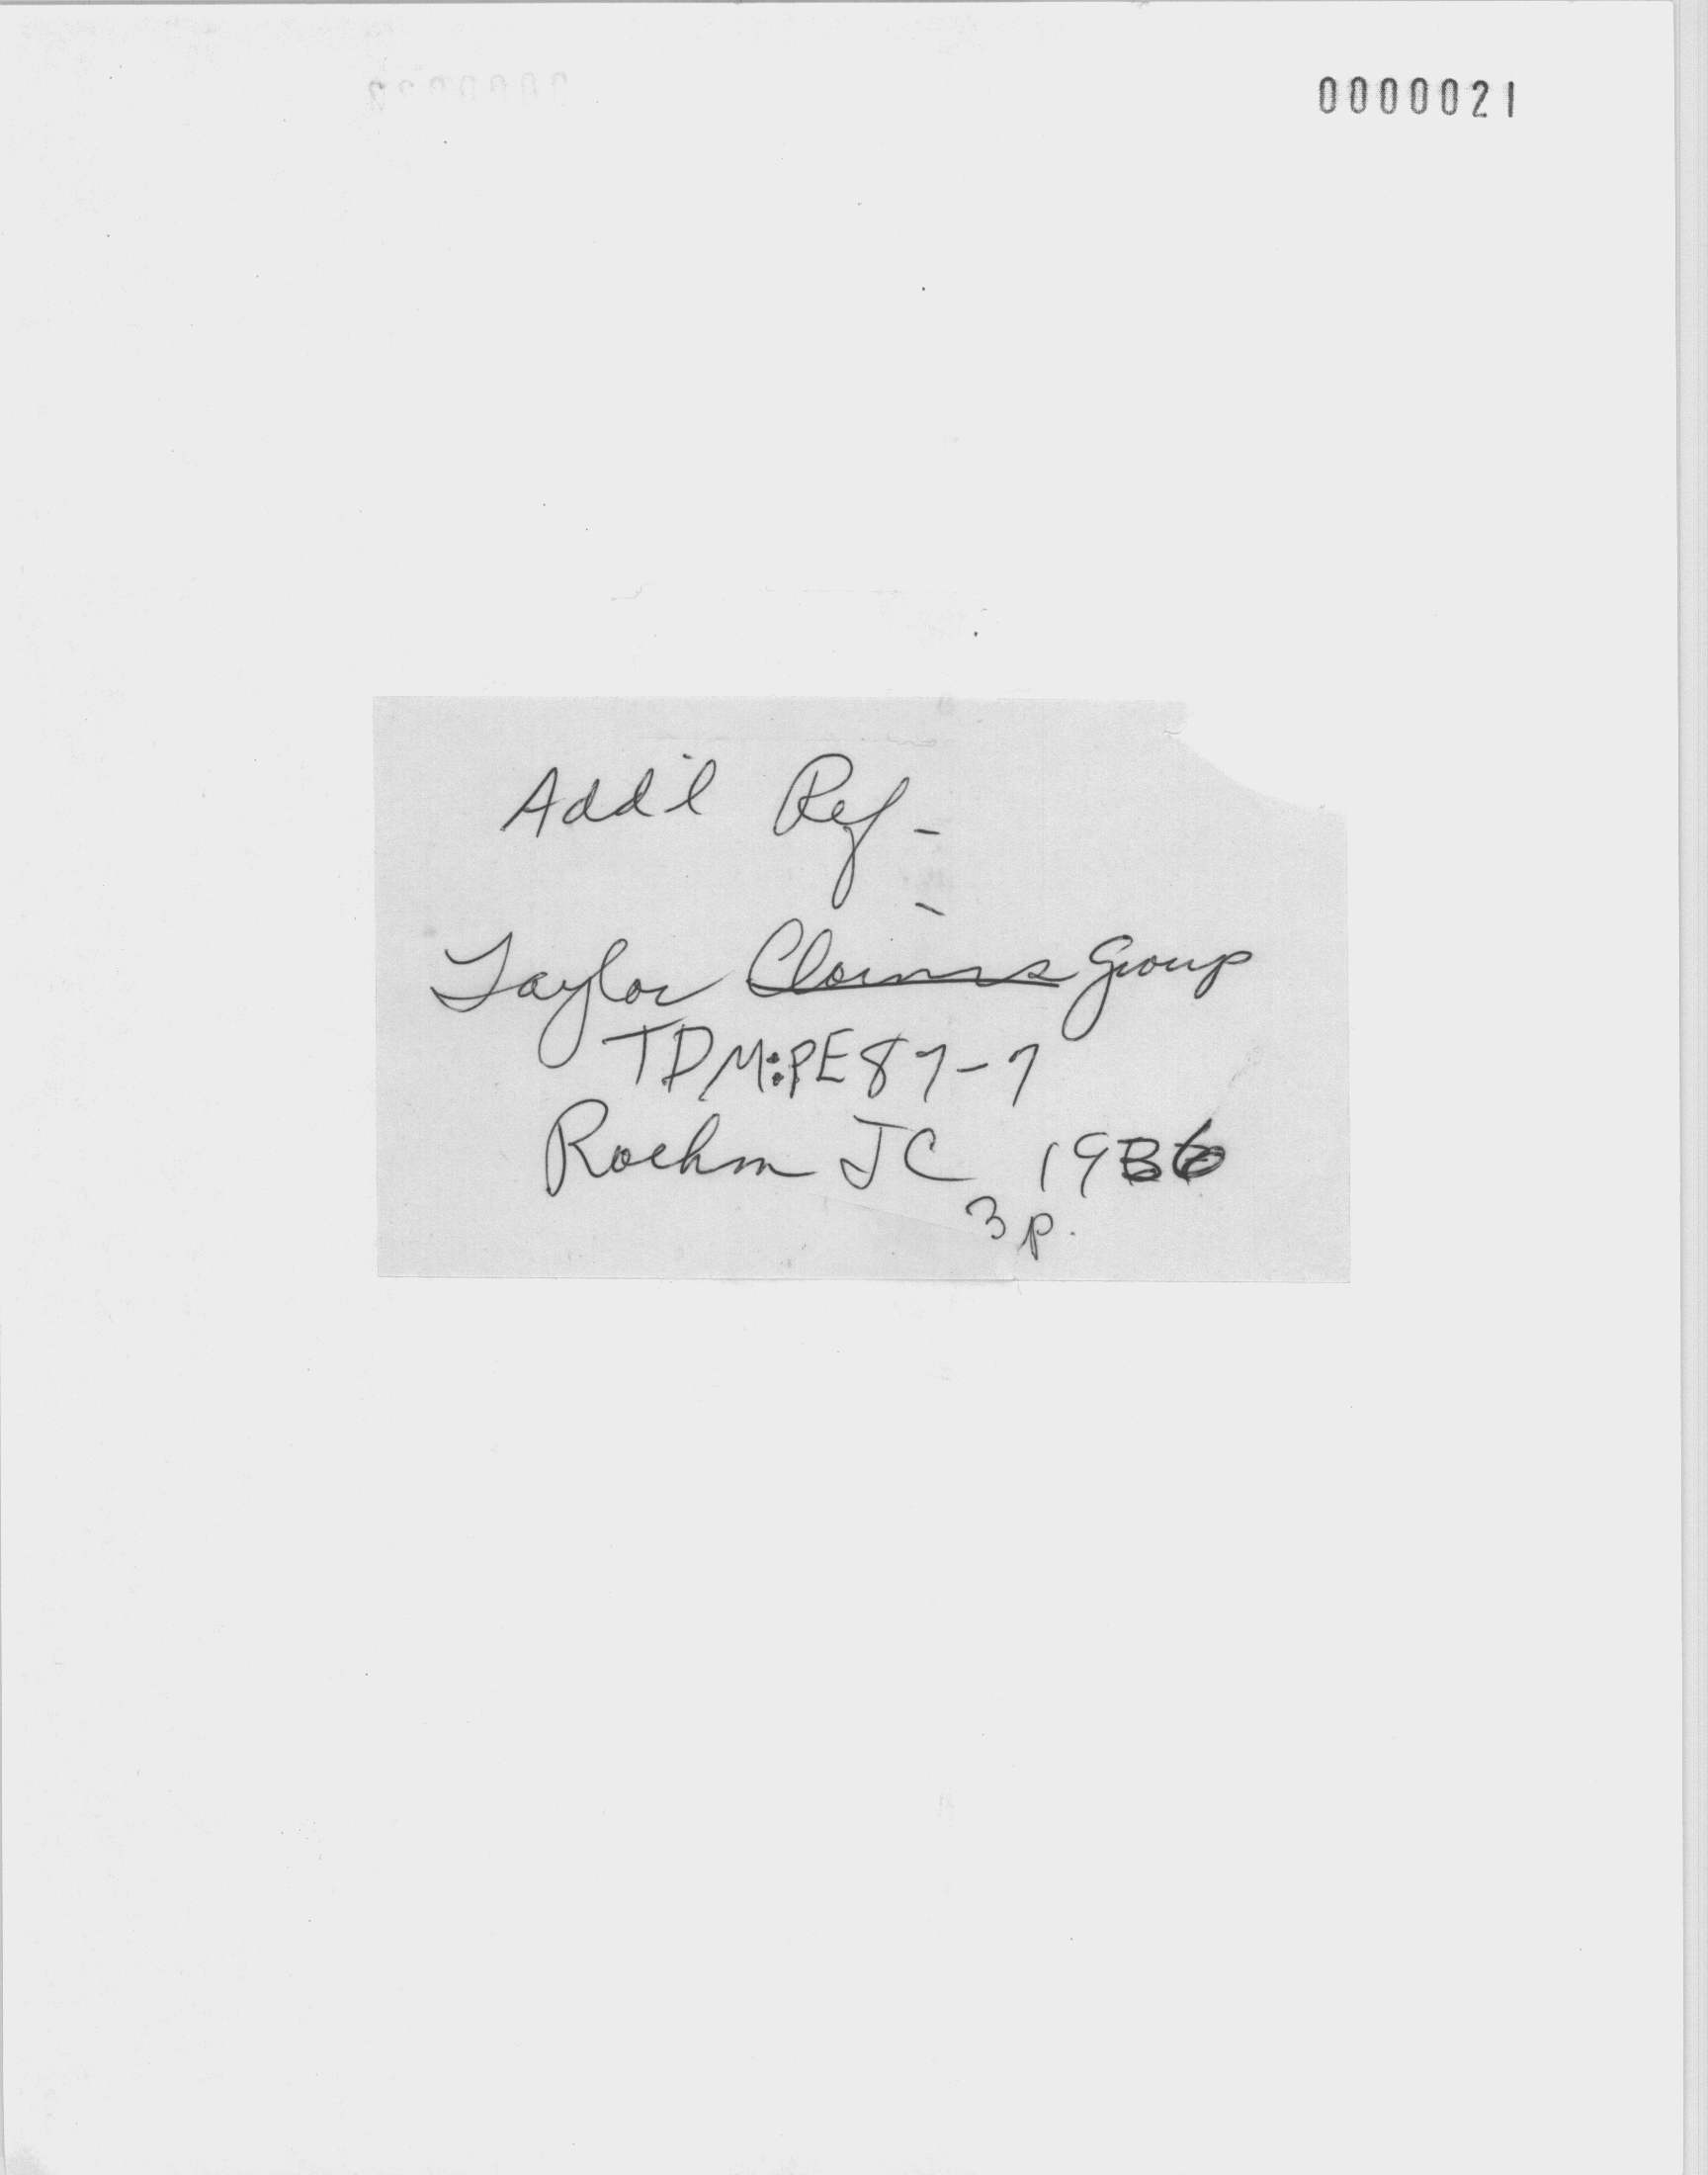 0000021
Add'l Ref -
Taylor Claims Group
TDM:PE87-7
Roehm JC 1936
3p.